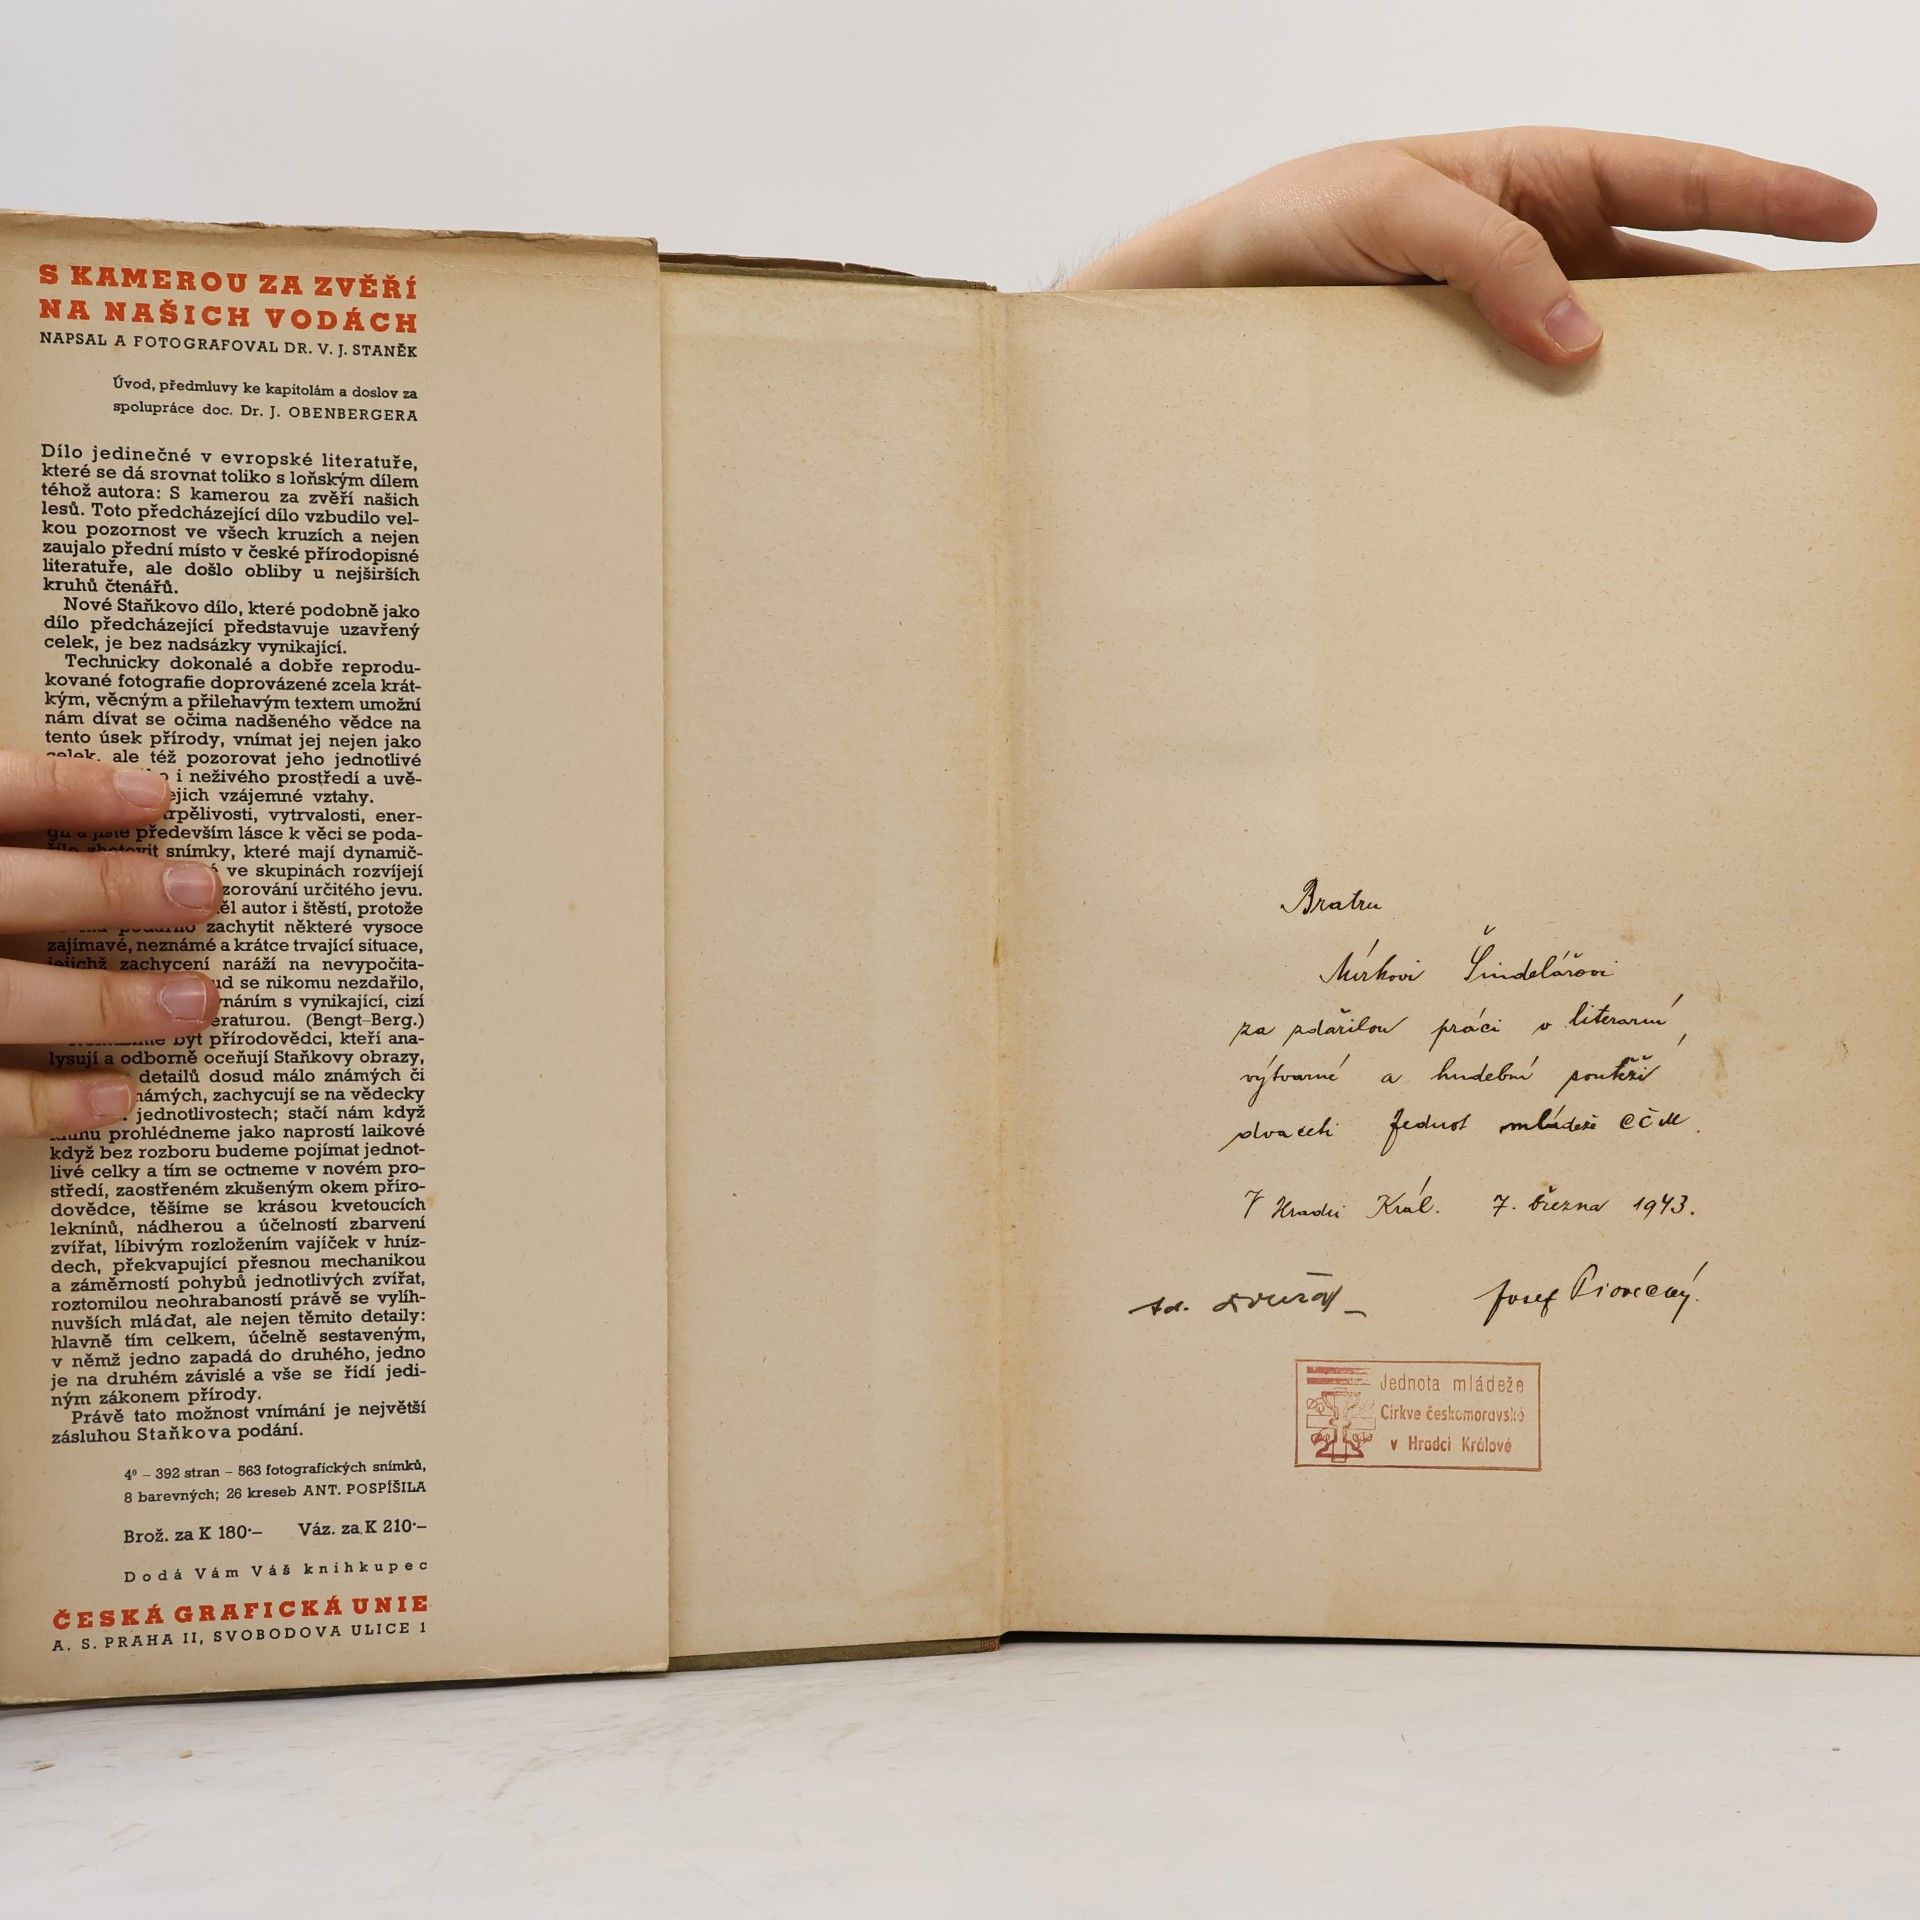 S KAMEROU ZA ZVĚŘÍ
NA NAŠICH VODÁCH
NAPSAL A FOTOGRAFOVAL DR. V. J. STANĚK
Úvod, předmluvy ke kapitolám a doslov za
spolupráce doc. Dr. J. OBENBERGERA
Dílo jedinečné v evropské literatuře,
které se dá srovnat toliko s loňským dílem
téhož autora: S kamerou za zvěří našich
lesů. Toto předcházející dílo vzbudilo vel-
kou pozornost ve všech kruzích a nejen
zaujalo přední místo v české přírodopisné
literatuře, ale došlo obliby u nejširších
kruhů čtenářů.
Nové Staňkovo dílo, které podobně jako
dílo předcházející představuje uzavřený
celek, je bez nadsázky vynikající.
Technicky dokonalé a dobře reprodu-
kované fotografie doprovázené zcela krát-
kým, věcným a přilehavým textem umožní
nám dívat se očima nadšeného vědce na
tento úsek přírody, vnímat jej nejen jako
celek, ale též pozorovat jeho jednotlivé
i neživého prostředí a uvě-
ejich vzájemné vztahy.
rpělivosti, vytrvalosti, ener-
gii a jistě především lásce k věci se poda-
řilo zhotovit snímky, které mají dynamič-
ve skupinách rozvíjejí
zorování určitého jevu.
ěl autor i štěstí, protože
zachytit některé vysoce
zajímavé, neznámé a krátce trvající situace,
jejichž zachycení naráží na nevypočita-
ud se nikomu nezdařilo,
vnáním s vynikající, cizí
eraturou. (Bengt-Berg.)
být přírodovědci, kteří ana-
lysují a odborně oceňují Staňkovy obrazy,
detailů dosud málo známých či
námých, zachycují se na vědecky
jednotlivostech; stačí nám když
knihu prohlédneme jako naprostí laikové
když bez rozboru budeme pojímat jednot-
livé celky a tím se octneme v novém pro-
středí, zaostřeném zkušeným okem příro-
dovědce, těšíme se krásou kvetoucích
leknínů, nádherou a účelností zbarvení
zvířat, líbivým rozložením vajíček v hníz-
dech, překvapující přesnou mechanikou
a záměrností pohybů jednotlivých zvířat,
roztomilou neohrabaností právě se vylíh-
nuvších mláďat, ale nejen těmito detaily:
hlavně tím celkem, účelně sestaveným,
v němž jedno zapadá do druhého, jedno
je na druhém závislé a vše se řídí jedi-
ným zákonem přírody.
Právě tato možnost vnímání je největší
zásluhou Staňkova podání.
4º – 392 stran – 563 fotografických snímků,
8 barevných; 26 kreseb ANT. POSPÍŠILA
Brož. za K 180·– Váz. za K 210·–
Dodá Vám Váš knihkupec
ČESKÁ GRAFICKÁ UNIE
A. S. PRAHA II, SVOBODOVA ULICE 1
Bratru
Mirkovi Šindelářovi
za zdařilou práci v literární,
výtvarné a hudební soutěži
dvaceti Jednot mládeže CČM.
V Hradci Král. 7. března 1943.
Josef
Jednota mládeže
Církve českomoravské
v Hradci Králové